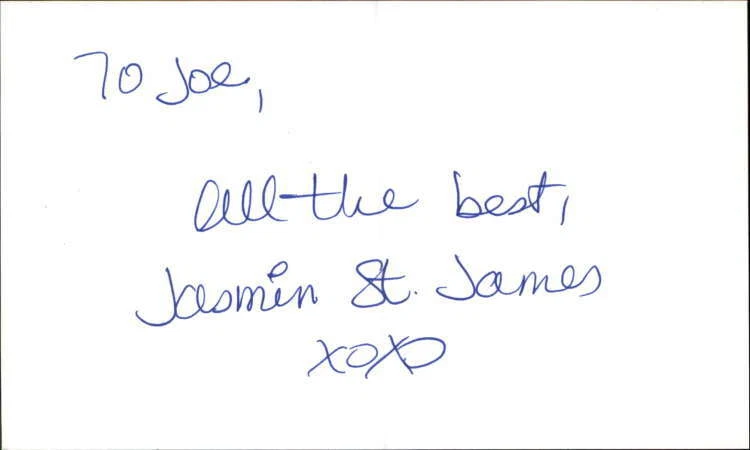 To Joe,
All the best,
Jasmin St. James
xoxo